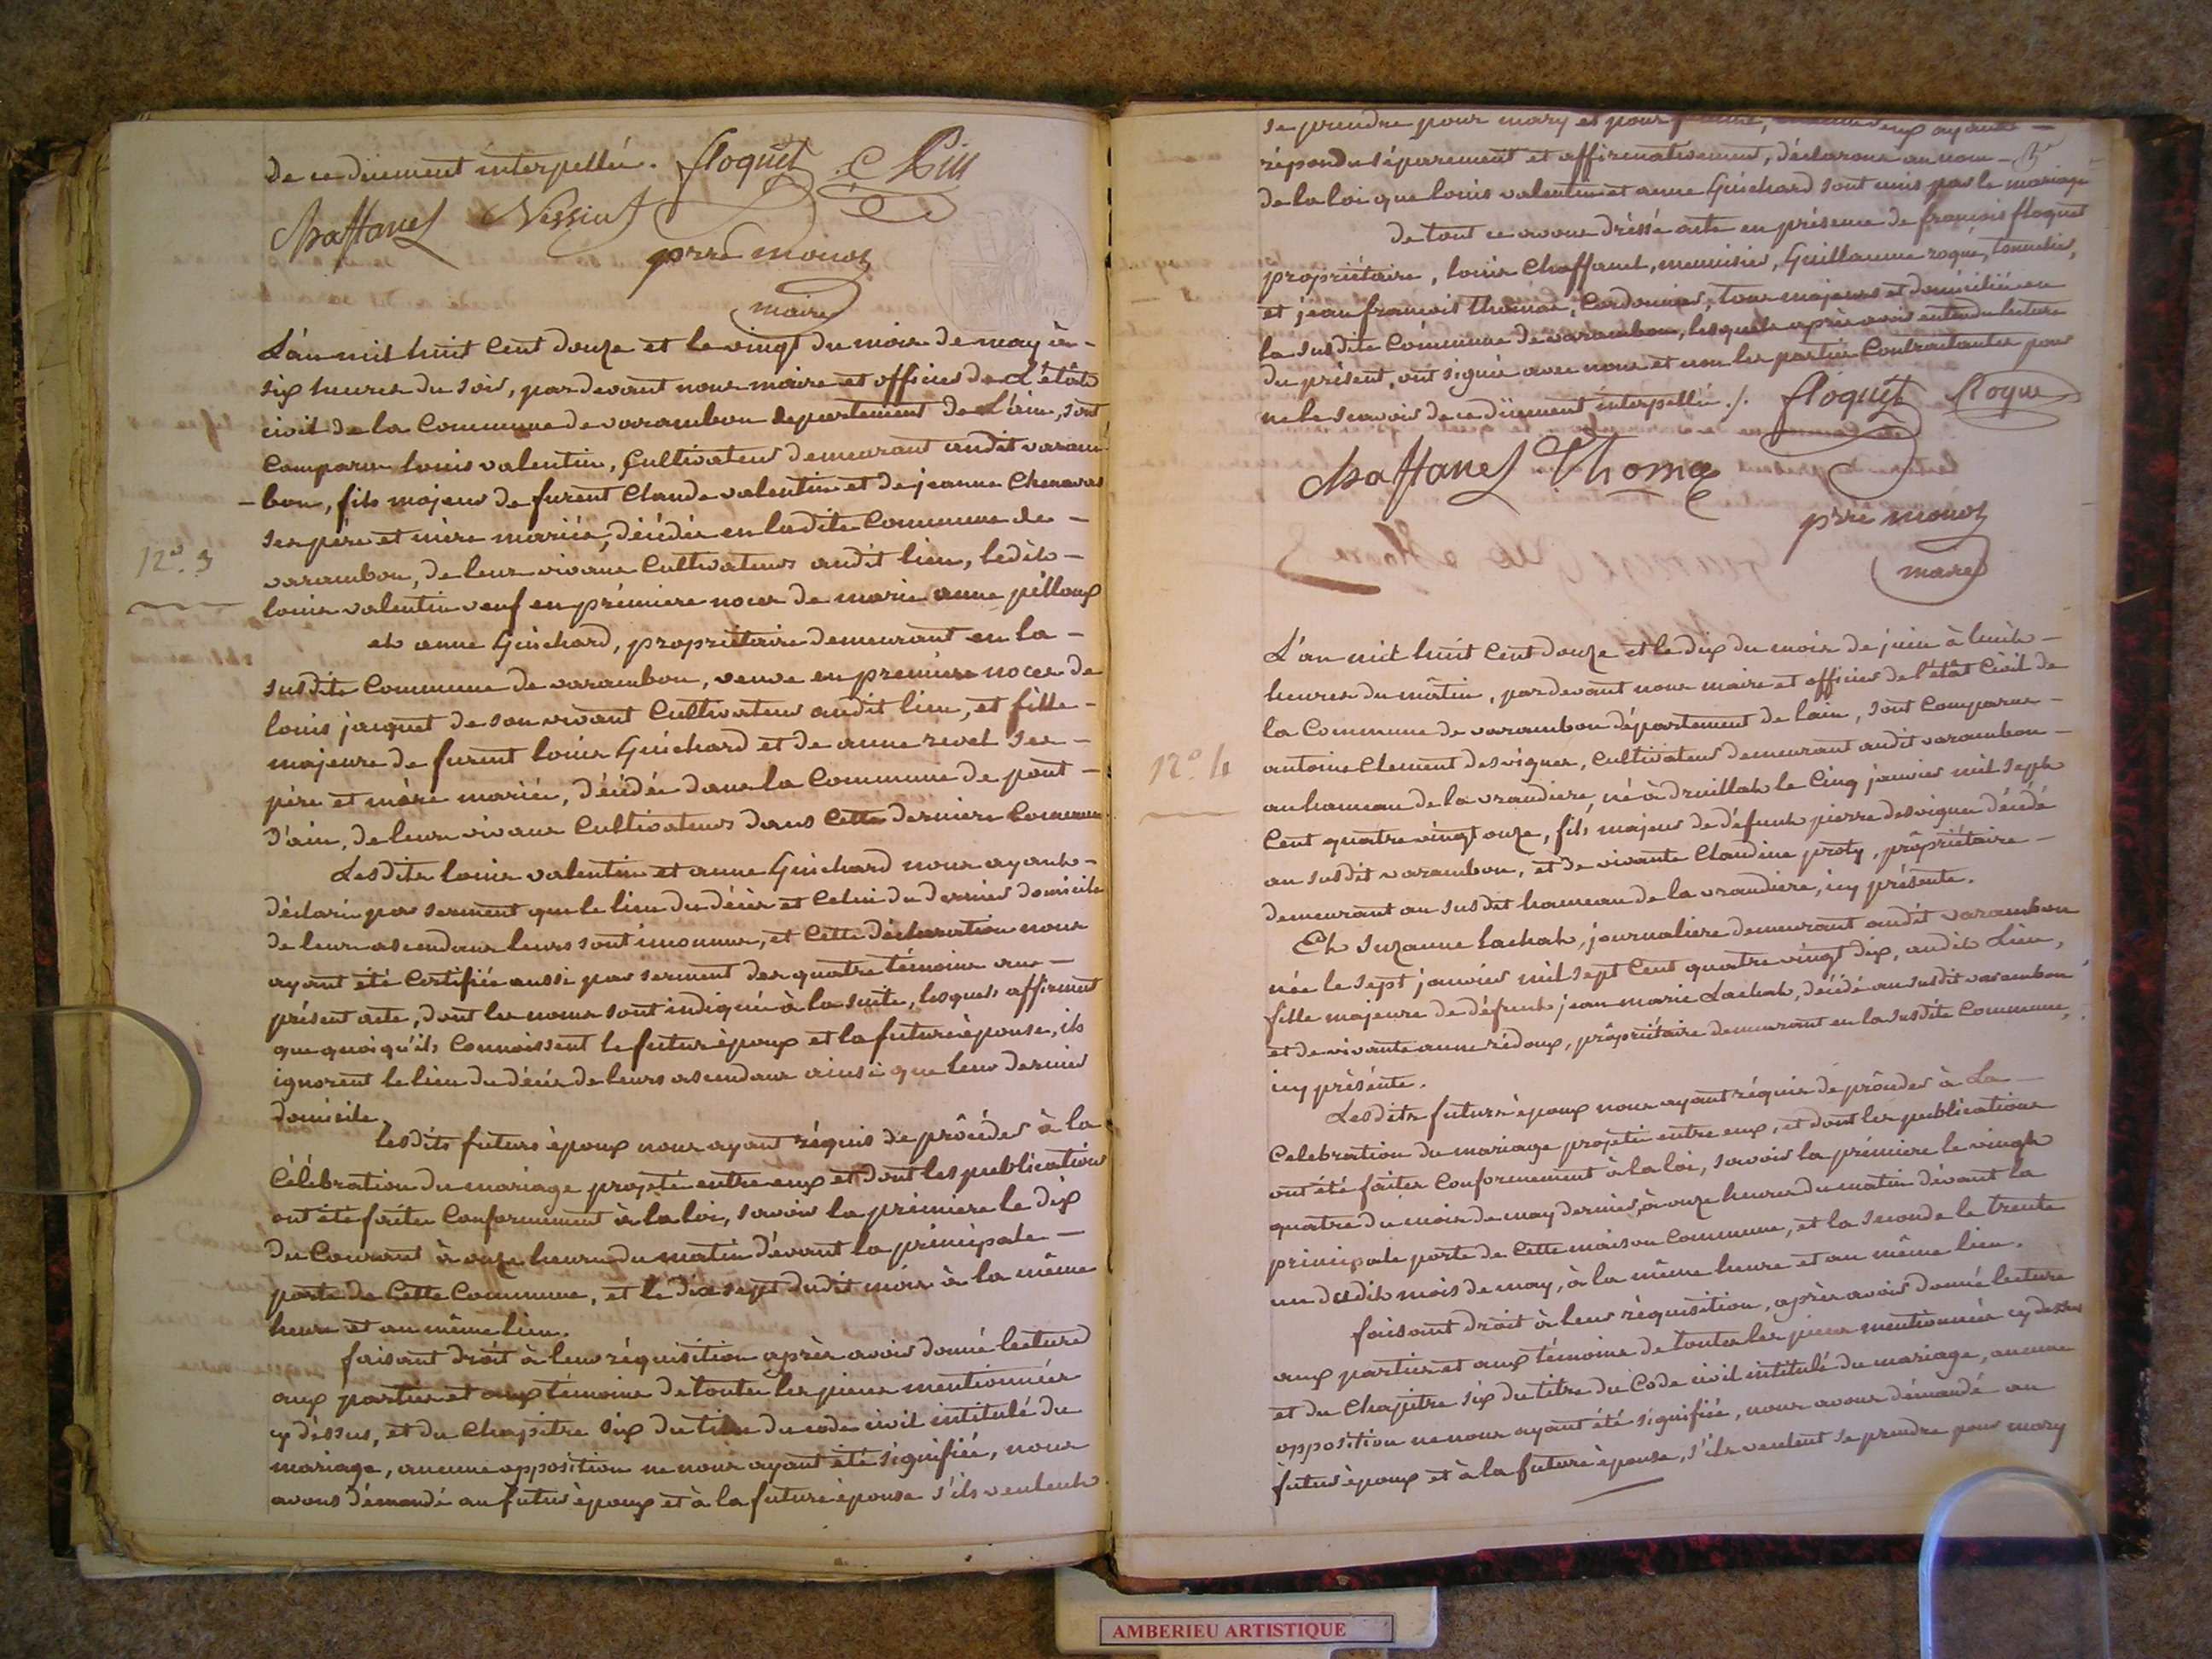 de ce duement interpellés. floquet
Chaffanel Vessiat
prre monot
maire
L'an mil huit Cent douze et le vingt du mois de may à -
six heures du soir, pardevant nous maire et officier de L'état
civil de la Commune de varambon departement de L'ain, sont
Comparu louis valentin, Cultivateur demeurant audit varam
- bon, fils majeur de furent Claude valentin et de jeanne
ses père et mère mariés, décédés en ladite Commune de -
N.o 3
varambon, de leur vivans Cultivateurs audit lieu, ledit -
louis valentin veuf en prémiere noces de marie anne pélloux
et anne Guichard, propriétaire demeurant en la -
susdite Commune de varambon, veuve en premiere noces de
louis jacquet de son vivant Cultivateur audit lieu, et fille -
majeure de furent louis Guichard et de anne revel ses -
père et mère mariés, décédés dans la Commune de pont -
d'ain, de leur vivans Cultivateurs dans Cette derniere Commune
Lesdits louis valentin et anne Guichard nous ayant -
déclaré par serment que le lieu du décès et Celui du dernier domicile
de leurs ascendans leurs sont inconnus, et Cette déclaration nous
ayant été Certifiée aussi par serment des quatre témoins au -
présent acte, dont les noms sont indiqués à la suite, lesquels affirment
que quoiqu'ils Connoissent le futur époux et la future épouse, ils
ignorent le lieu du décès de leurs ascendans ainsi que leur dernier
domicile.
lesdits futurs époux nous ayant réquis de procéder à la
Célébration du mariage projeté entre eux et dont les publications
ont été faites Conformement à la loi, savoir la prémiere le dix
du Courant à onze heures du matin dévant la principale -
porte de Cette Commune, et le dix sept dudit mois à la même
heure et au même lieu.
faisant droit à leur réquisition après avoir donné lecture
aux parties et aux témoins de toutes les pieces mentionnées
cy dessus, et du Chapitre six du titre du code civil intitulé du
mariage, aucune opposition ne nous ayant été signifiée, nous
avons démandé au futur époux et à la future épouse s'ils veulent
se prendre pour mary et pour femme, eux ayant -
répondu séparement et affirmativement, déclarons au nom -
de la loi que louis valentin et anne Guichard sont unis par le mariage
de tout ce avons dréssé acte en présence de françois floquet
propriétaire, louis Chaffanel, menuisier, Guillaume roque, tonnelier,
et jean françois thomas, Cordonnier, tous majeurs et domiciliés en
la susdite Commune de varambon, lesquels après avoir entendu lecture
du présent, ont signé avec nous et non les parties Contractantes pour
ne le scavoir de ce duement interpellés ./. floquet Roque
Chaffanel Thomas
prre monot
maire
L'an mil huit Cent douze et le dix du mois de juin à huit -
heures du mâtin, pardevant nous maire et officier de l'état Civil de
la Commune de varambon département de lain, sont Comparus -
N.o 4
antoine Clement desvignes, Cultivateur demeurant audit varambon -
au hameau de la vrandiere, né à druillat le Cinq janvier mil sept
Cent quatre vingt onze, fils majeur de défunt pierre desvignes décédé
au susdit varambon, et de vivante Claudine proty, propriétaire -
demeurant au susdit hameau de la vrandiere, icy présente.
Et suzanne Lachat, journaliere demeurant audit varambon
née le sept janvier mil sept Cent quatre vingt dix, audit Lieu,
fille majeure de défunt jean marie Lachat, décédé au susdit varambon
et de vivante anne rédoux, propriétaire demeurant en la susdite Commune,
icy présente.
Lesdits futurs époux nous ayant réquis de procéder à La -
Celebration du mariage projeté entre eux, et dont les publications
ont été faites Conformement à la loi, savoir la prémiere le vingt
quatre du mois de may dernier, à onze heures du matin dévant la
principale porte de Cette maison Commune, et la seconde le trente
un dudit mois de may, à la même heure et au même lieu.
faisant droit à leur réquisition, après avoir donné lecture
aux parties et aux témoins de toutes les pieces mentionnées cy dessus
et du Chapitre six du titre du Code civil intitulé du mariage, aucune
opposition ne nous ayant été signifiée, nous avons démandé au
futur époux et à la future épouse, s'ils veulent se prendre pour mary
AMBERIEU ARTISTIQUE